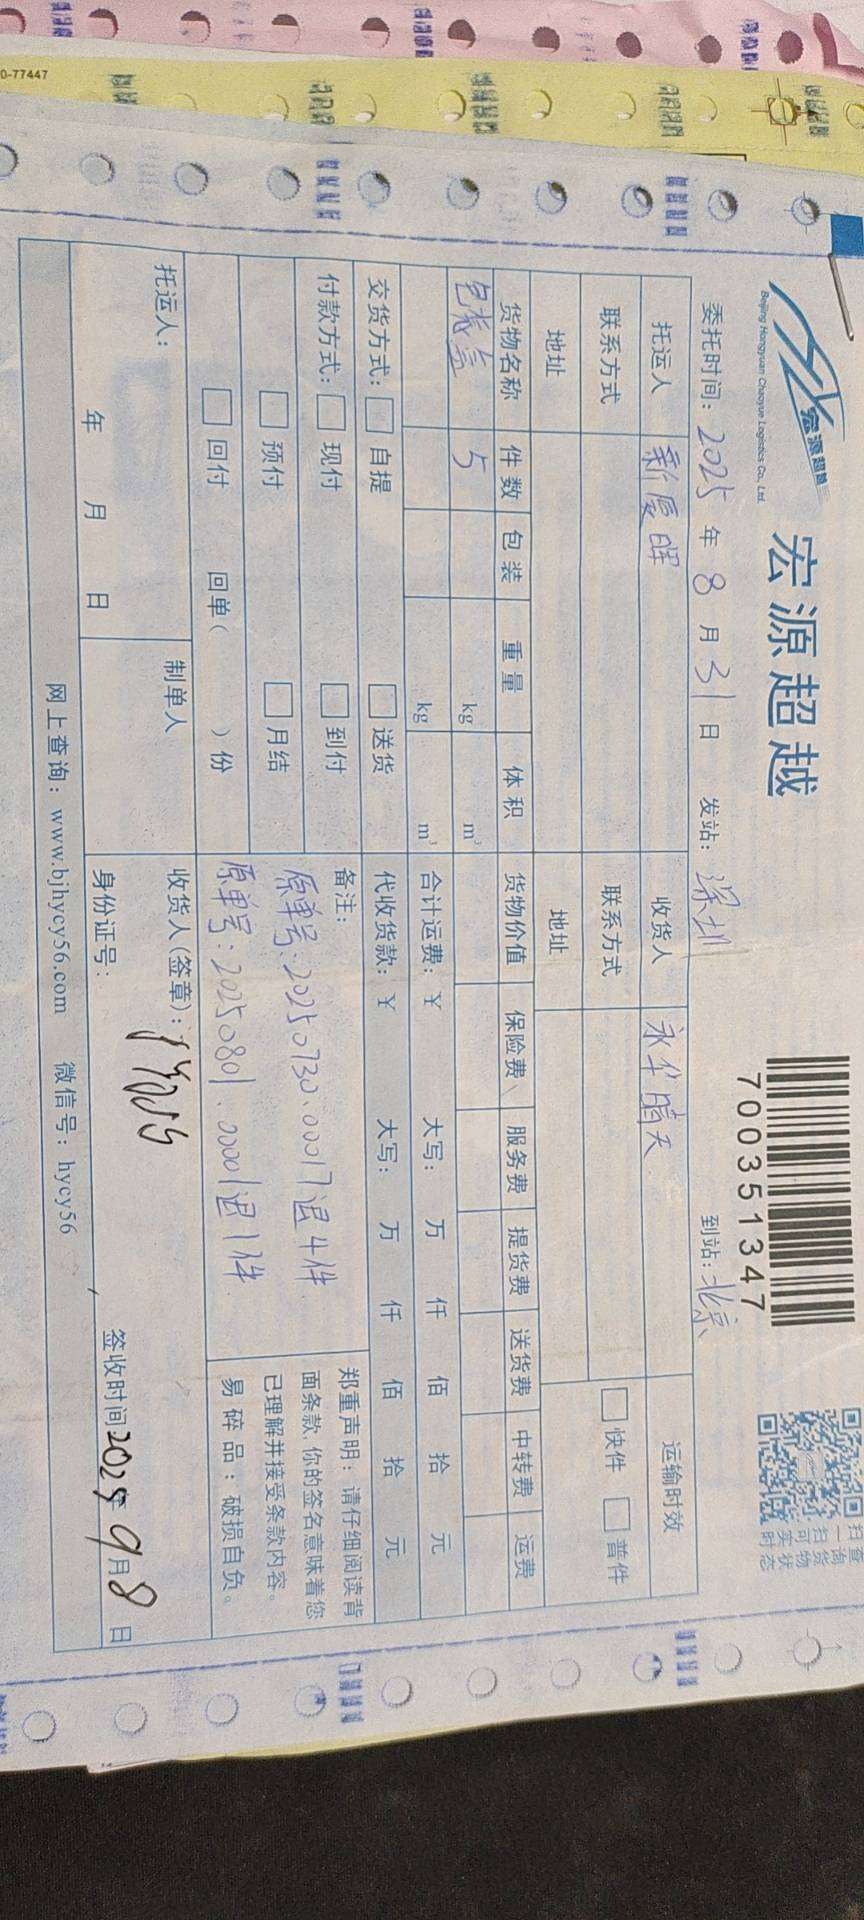 0-77447
宏源超越
Beijing Hongyuan Chaoyue Logistics Co., Ltd.
宏源超越
700351347
扫一扫可实时
查询货物状态
委托时间：2025年8月31日 发站：深圳 到站：北京
托运人 新厦晖 收货人 永华晴天 运输时效
联系方式 联系方式 快件 普件
地址 地址
货物名称 件数 包装 重量 体积 货物价值 保险费 服务费 提货费 送货费 中转费 运费
包装盒 5 kg m³
kg m³ 合计运费：¥ 大写： 万 仟 佰 拾 元
交货方式： 自提 送货 代收货款：¥ 大写： 万 仟 佰 拾 元
付款方式： 现付 到付 备注：
预付 月结 原单号：20250730.00017退4件
回付 回单（ ）份 原单号：20250801.00001退1件
郑重声明：请仔细阅读背
面条款 你的签名意味着您
已理解并接受条款内容。
易碎品：破损自负。
托运人： 制单人 收货人(签章)：
年 月 日 身份证号： 签收时间2025年9月8日
网上查询：www.bjhycy56.com 微信号：hycy56